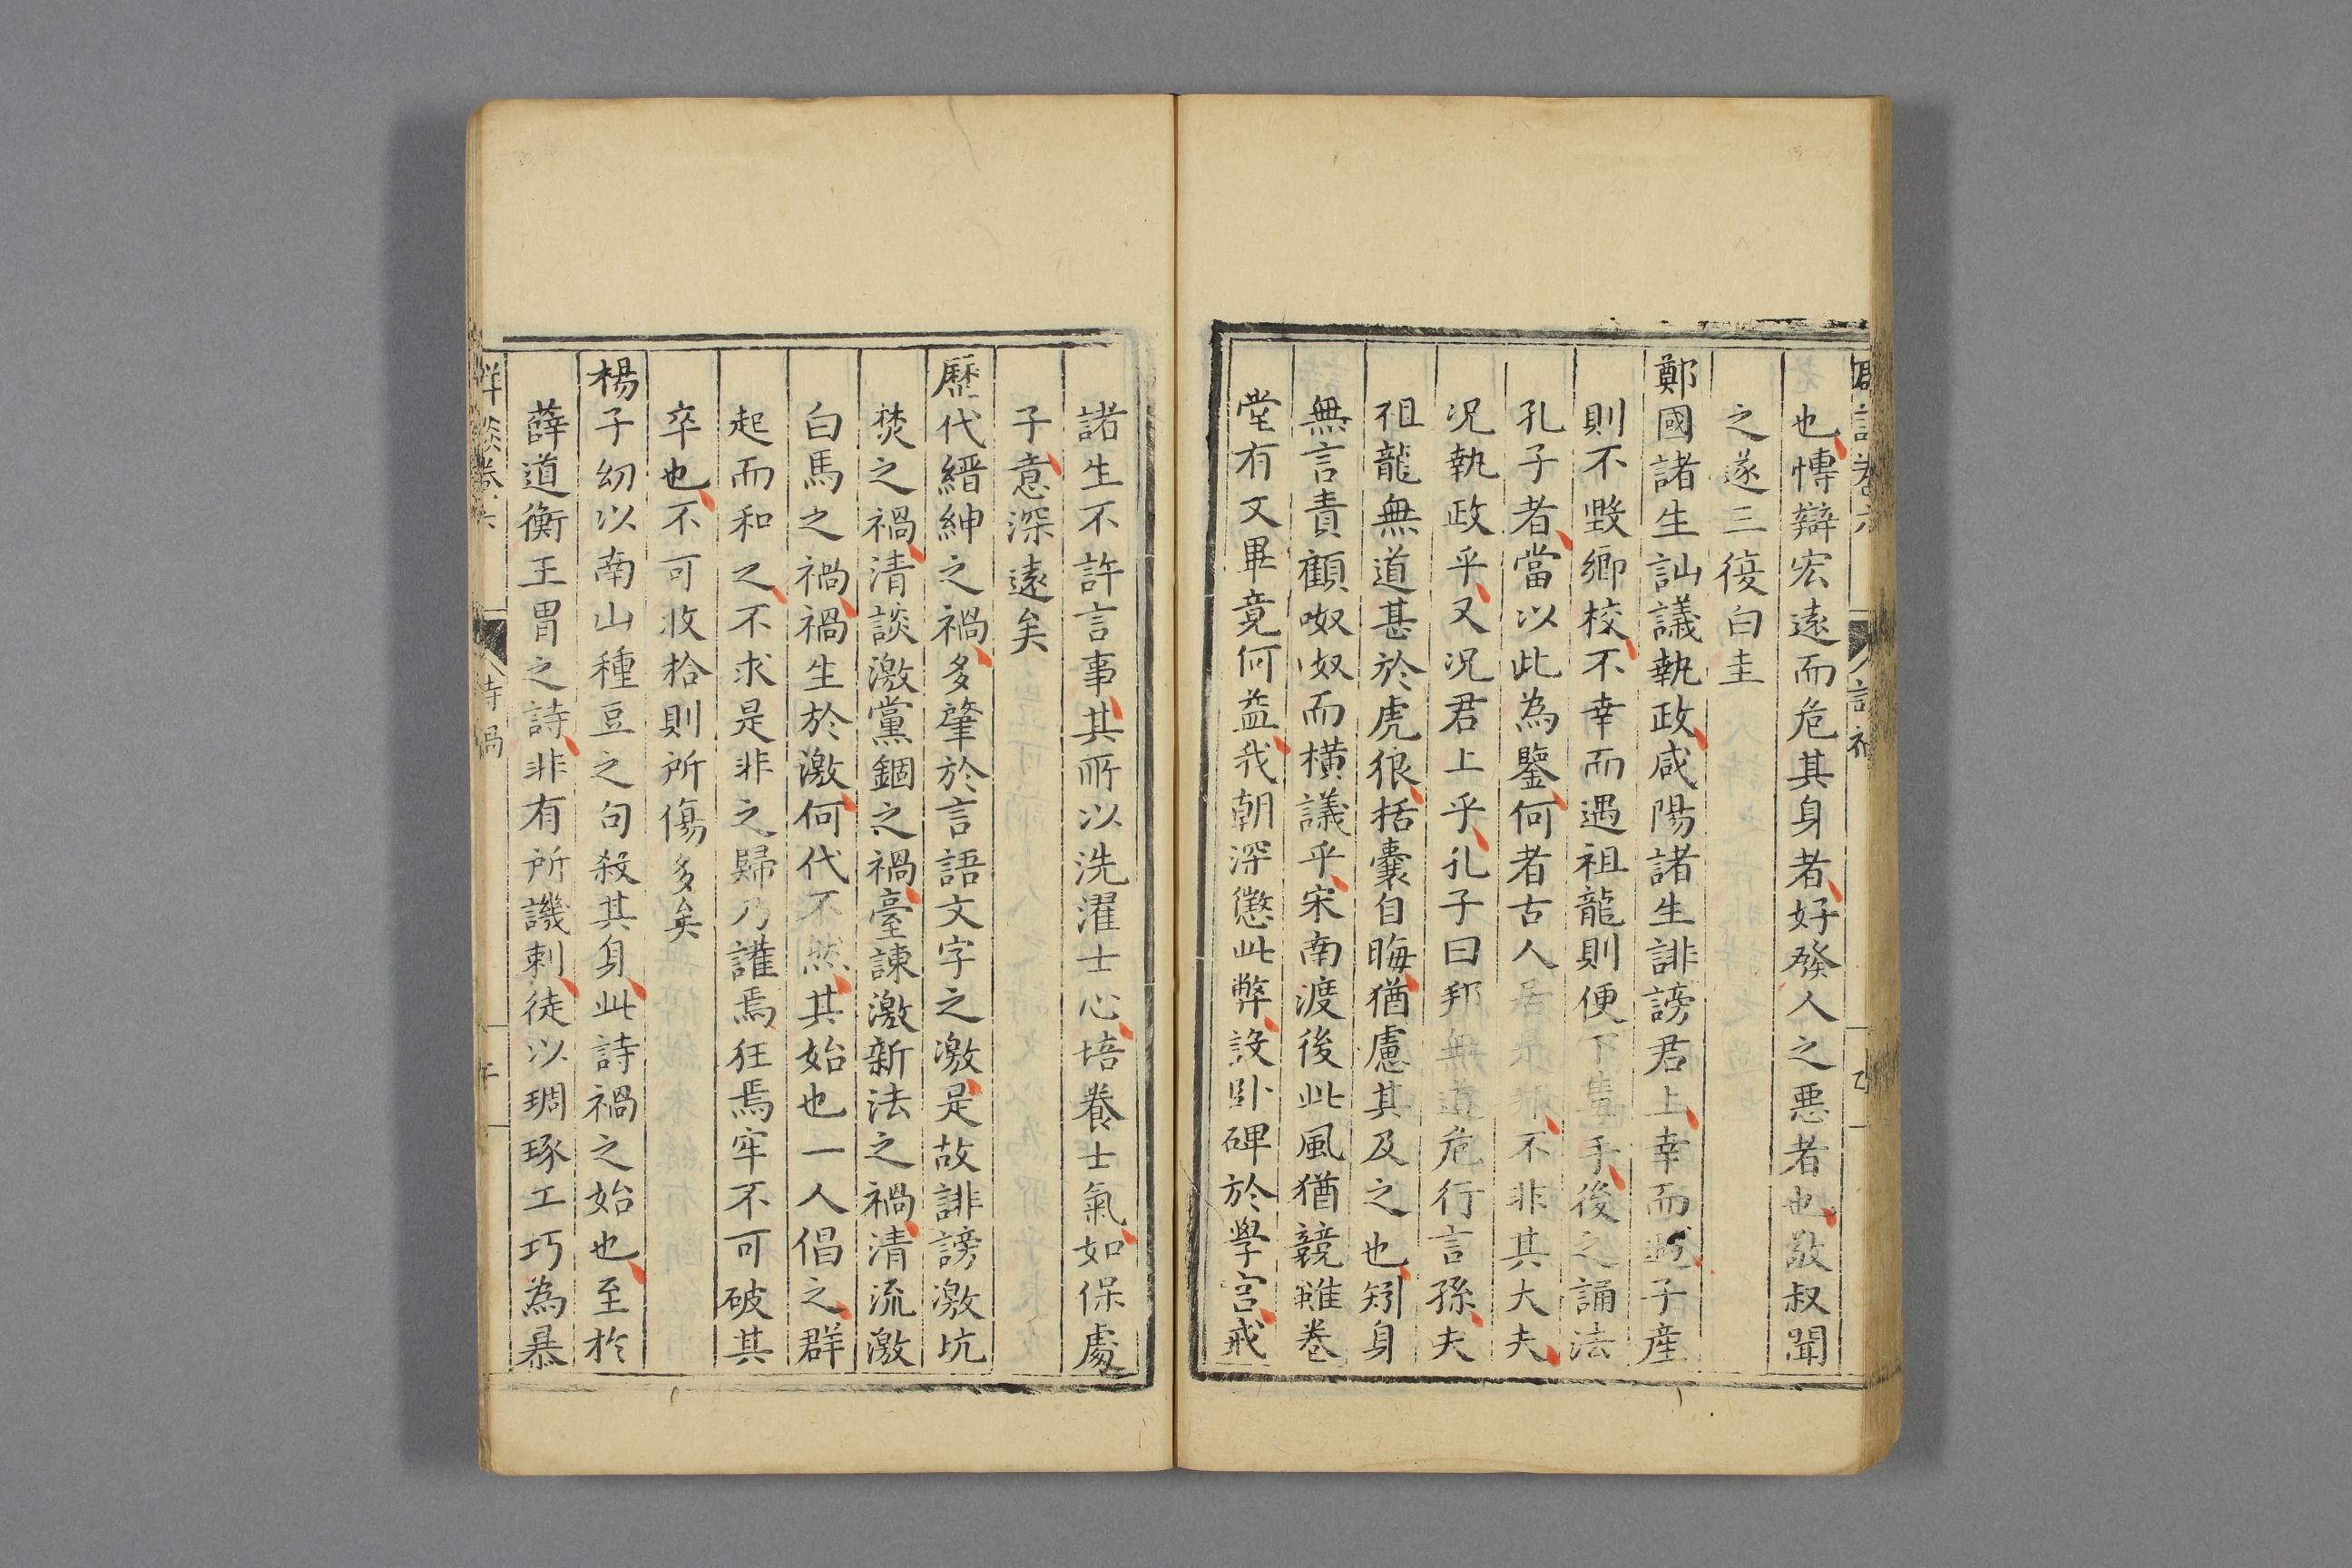 也博辯宏遠而危其身者好發人之悪者也敬叔聞
之遂三復白圭
鄭國諸生訕議執政咸陽諸生誹謗君上幸而遇子産
則不毀鄉校不幸而遇祖龍則便下隻手後之誦法
孔子者當以此為鑒何者古人居是邦不非其大夫
况執政乎又况君上乎孔子曰邦無道危行言孫夫
祖龍無道甚於虎狼括囊自晦猶慮其及之也矧身
無言責顧呶呶而横議乎宋南渡後此風猶競雖卷
堂有文畢竟何益我朝深懲此弊設卧碑於學宫戒
諸生不許言事其所以洗濯士心培養士氣如保處
子意深遠矣
歷代縉紳之禍多肇於言語文字之激是故誹謗激坑
焚之禍清談激黨錮之禍臺諫激新法之禍清流激
白馬之禍禍生於激何代不然其始也一人倡之群
起而和之不求是非之歸乃讙焉狂焉牢不可破其
卒也不可收拾則所傷多矣
楊子幼以南山種豆之句殺其身此詩禍之始也至於
薛道衡王胄之詩非有所譏刺徒以琱琢工巧為暴
群談卷六
詩禍